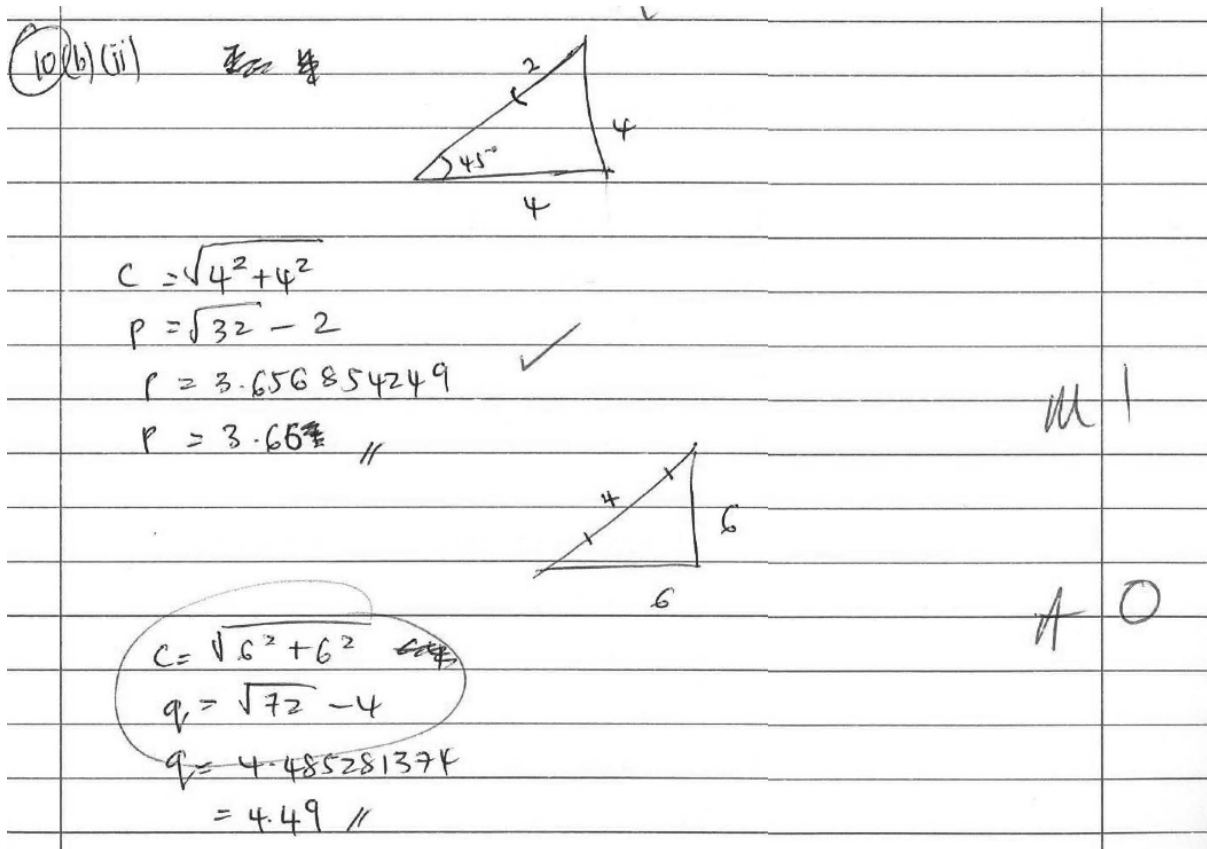 10(b)(ii)
2
4
45°
4
C = √4² + 4²
P = √32 - 2
P = 3.656854249
P = 3.66 //
M 1
4
6
6
A 0
C = √6² + 6²
q = √72 - 4
q = 4.485281374
= 4.49 //